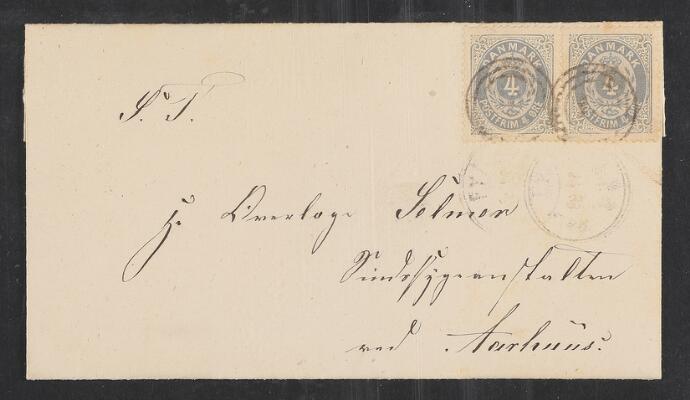 DANMARK DANMARK
4 4
POSTFRIM 4 ØRE POSTFRIM 4 ØRE
S. T.
Hr Overlæge Selmer
Sindssygeanstalten
ved Aarhuus.